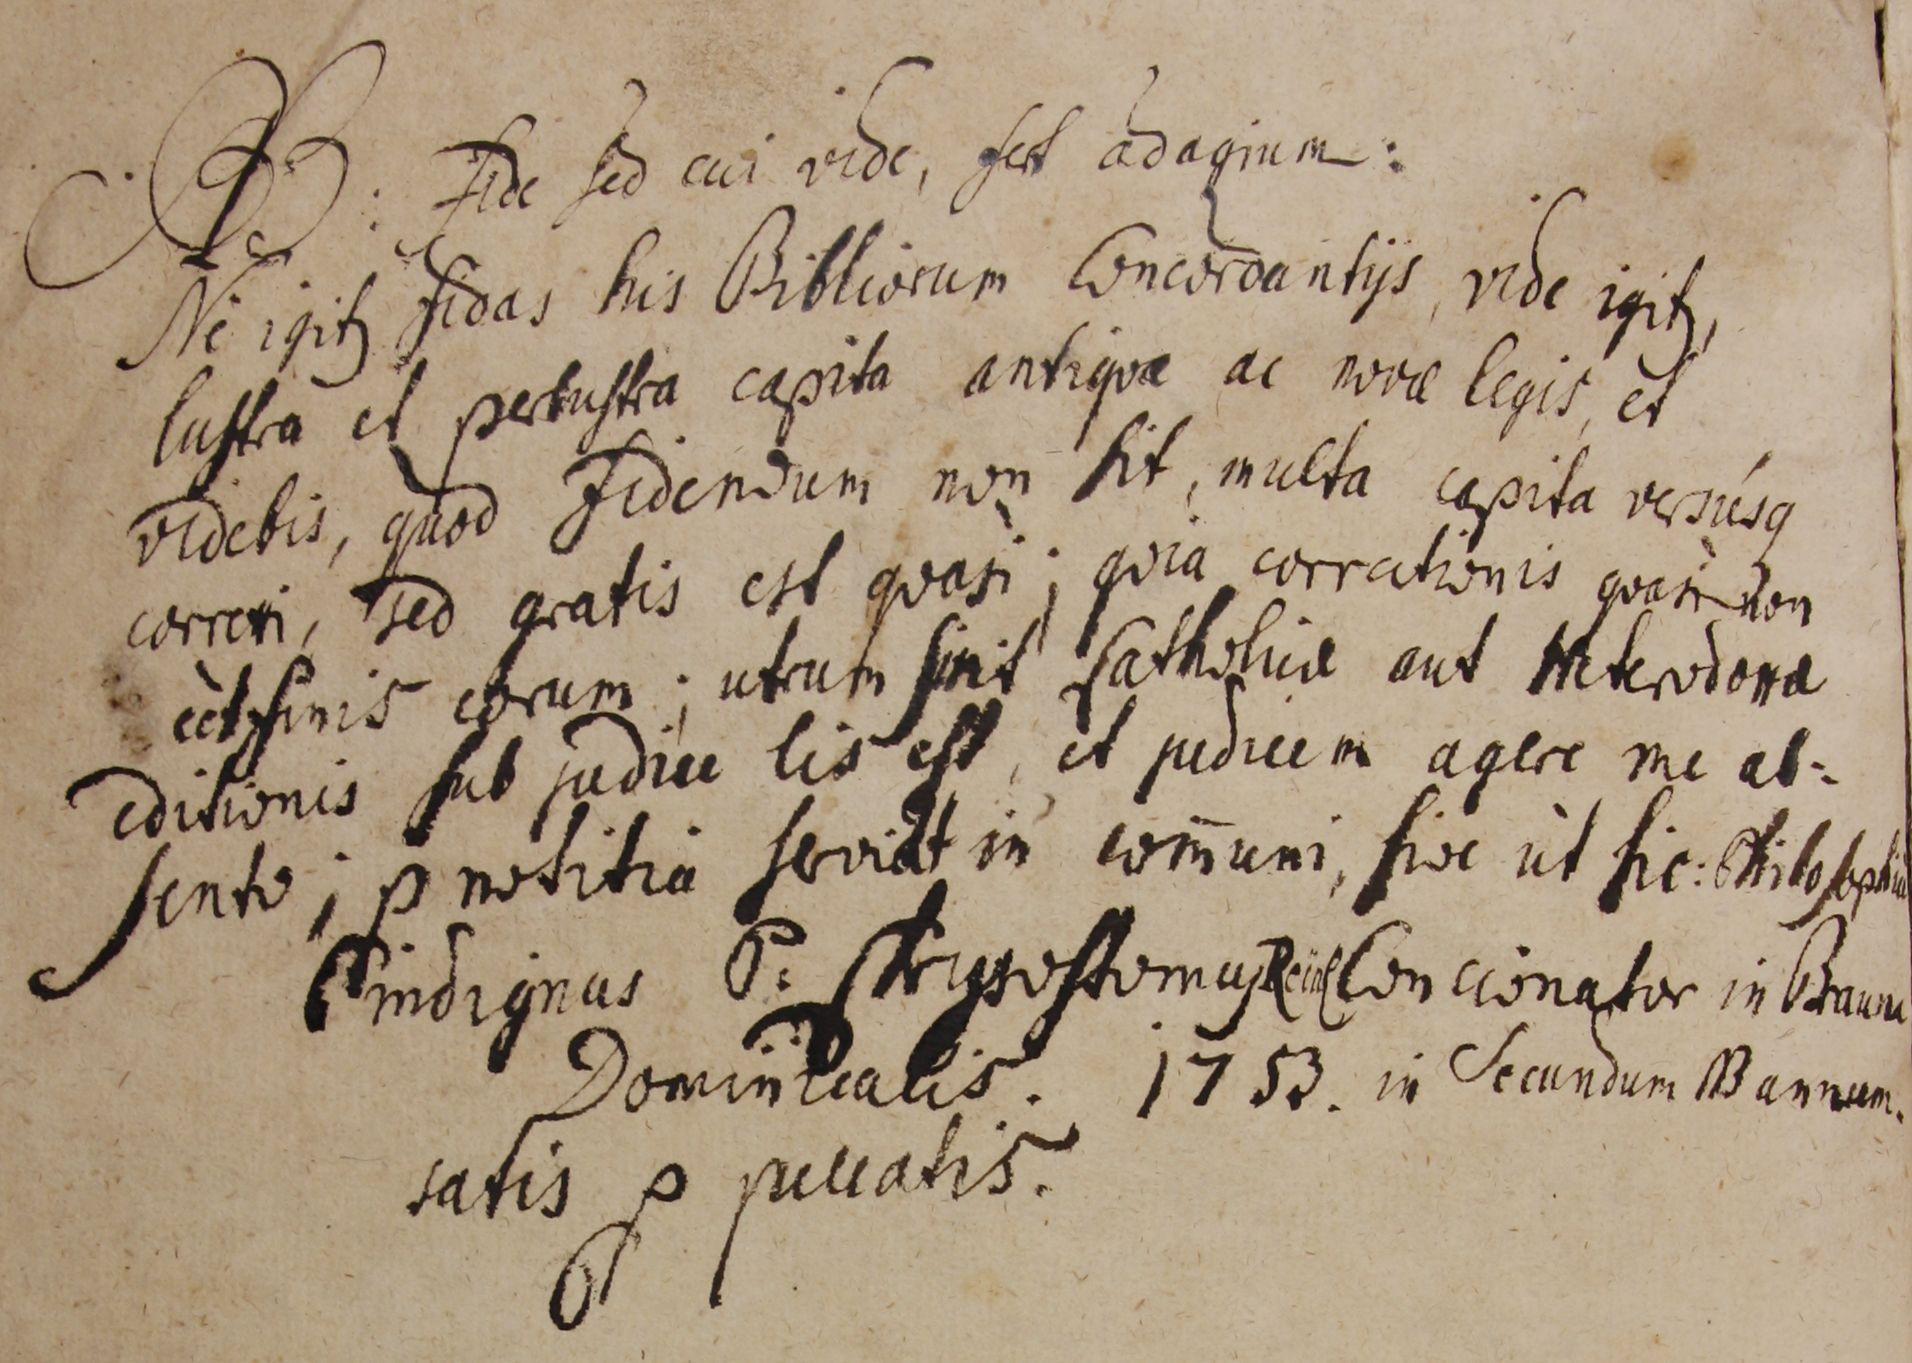 NB: Fide sed cui vide, fert adagium:
Ne igitr fidas his Bibliorum Concordantijs, vide igitr,
lustra et perlustra capita antiquæ ac novæ legis, et
videbis, quod fidendum non sit, multa capita versúsq
correxi, sed gratis est quasi; quia correctionis quasi non
est finis eorum; utrum sint Catholicæ aut Heterodoxæ
editionis sub judice lis est, et judicem agere me ab-
sento; p notitia serviat in communi, sive ùt sic: Philosophia
P indignus P: Chrysostomus Concionator in Braun
Dominicalis. 1753. in Secundum Bannum.
satis p peccatis.